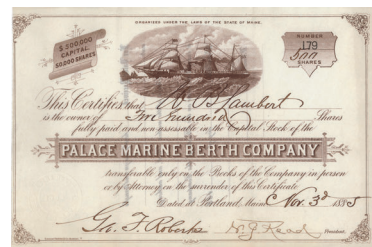 ORGANIZED UNDER THE LAWS OF THE STATE OF MAINE.
$500,000
CAPITAL.
50,000 SHARES
NUMBER
179
500
SHARES
This Certifies that W. B. Lambert
is the owner of Five Hundred Shares
fully paid and non assessable in the Capital Stock of the
PALACE MARINE BERTH COMPANY
transferable only on the Books of the Company in person
or by Attorney on the surrender of this Certificate
Dated at Portland, Maine Nov. 3d 1885
Geo. F. Roberts
W. J. Read President.